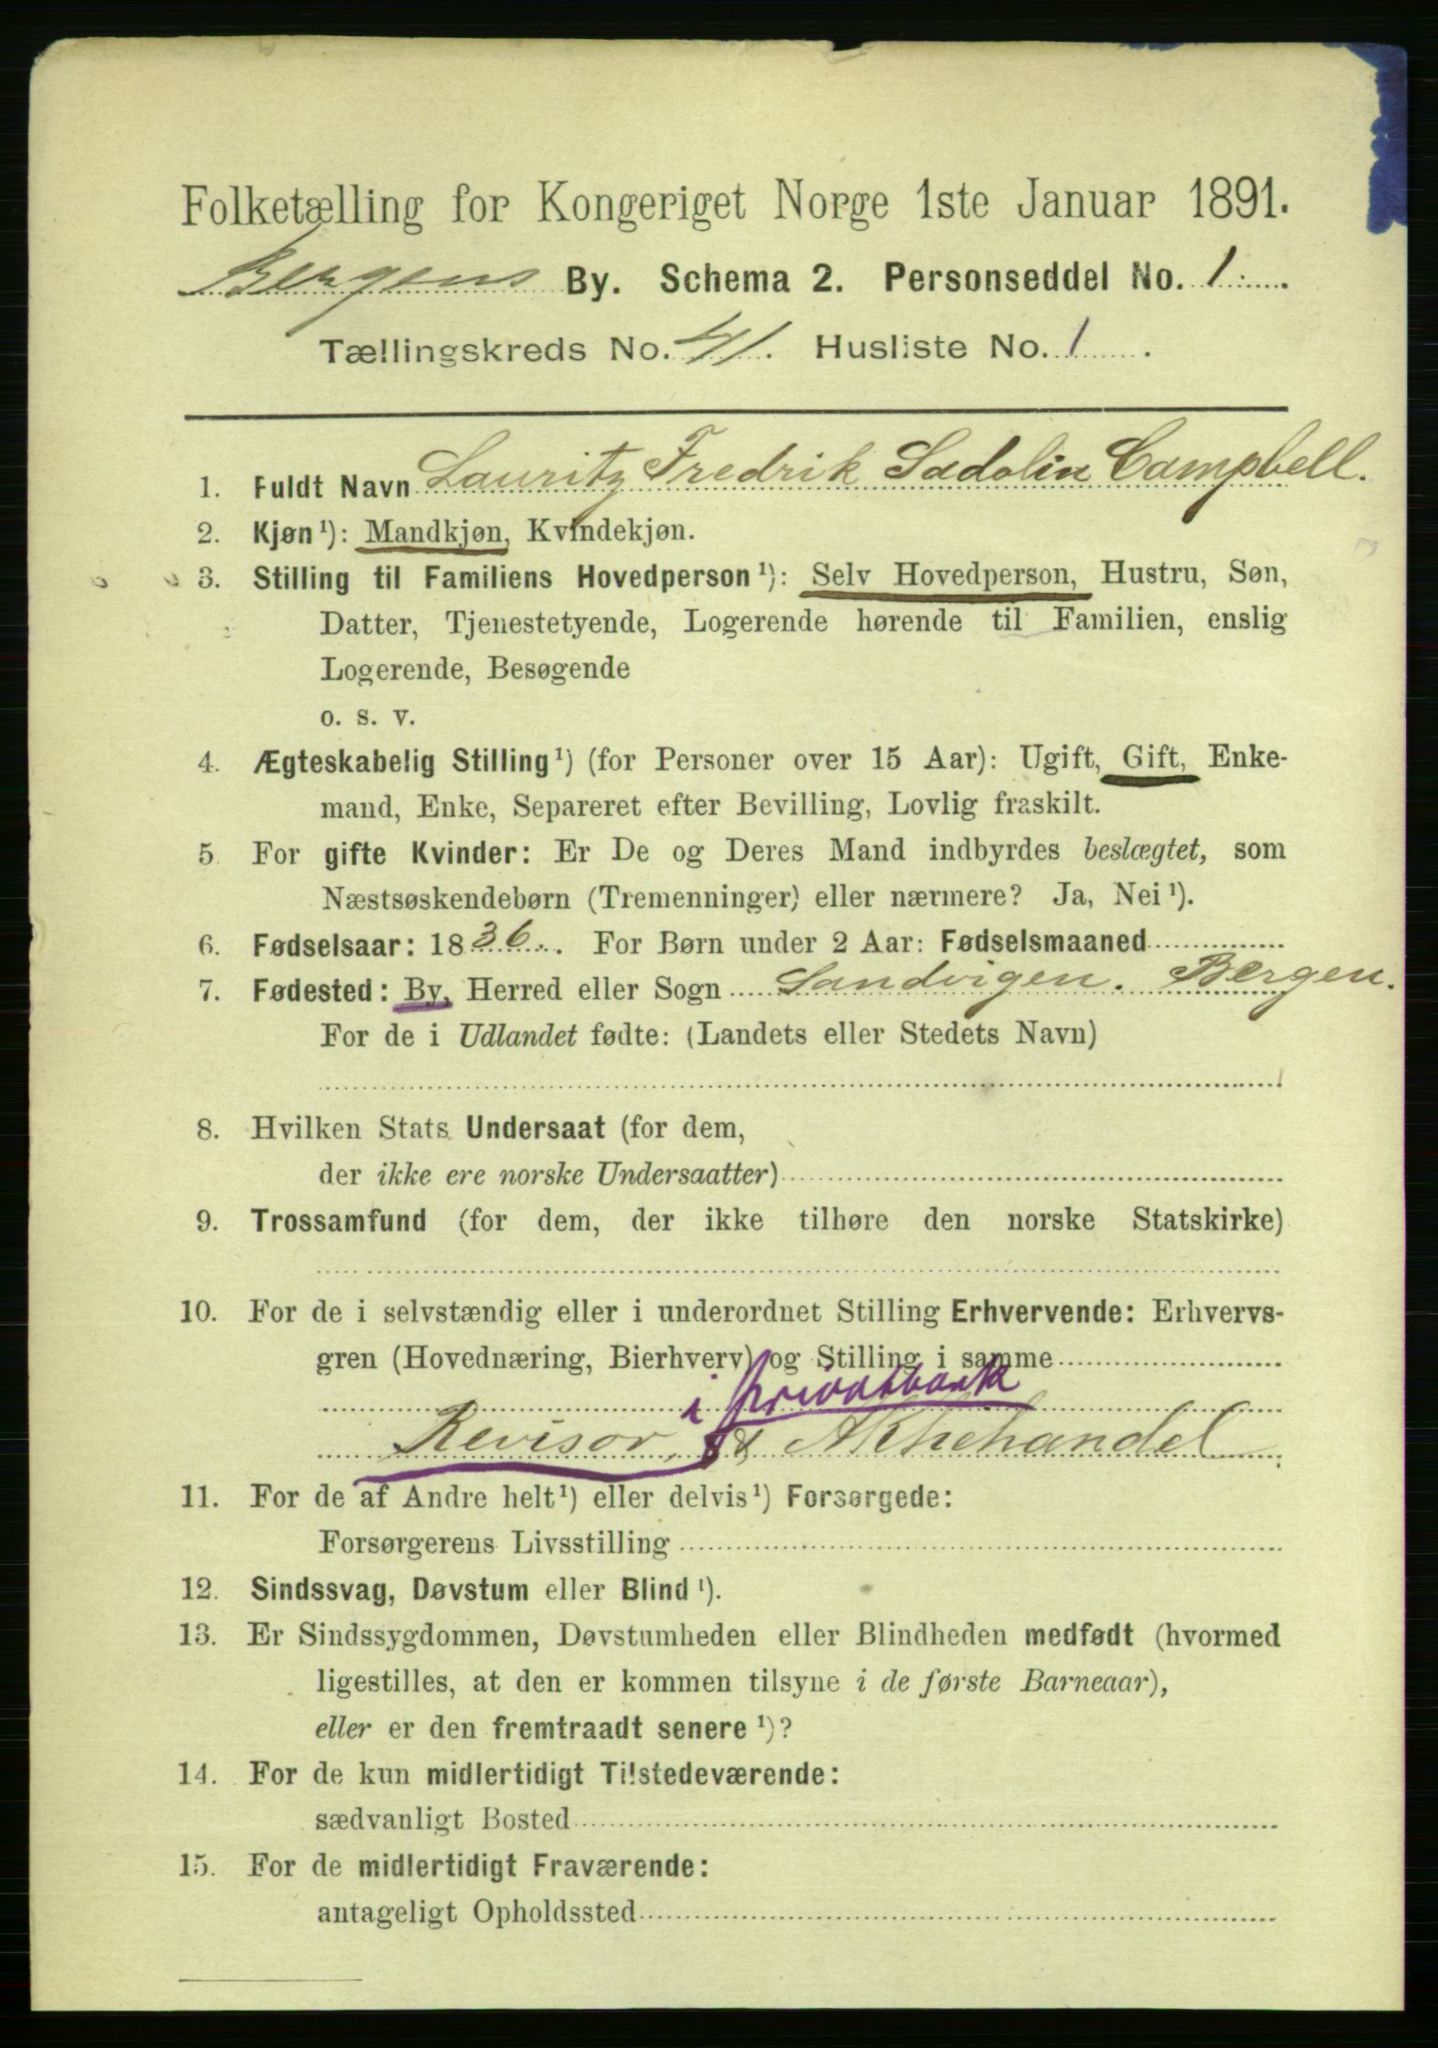 Folketælling for Kongeriget Norge 1ste Januar 1891.
Bergens By. Schema 2. Personseddel No. 1.
Tællingskreds No. 41. Husliste No. 1.
1. Fuldt Navn Lauritz Fredrik Sadolin Campbell.
2. Kjøn¹): Mandkjøn, Kvindekjøn.
3. Stilling til Familiens Hovedperson¹): Selv Hovedperson, Hustru, Søn,
Datter, Tjenestetyende, Logerende hørende til Familien, enslig
Logerende, Besøgende
o. s. v.
4. Ægteskabelig Stilling¹) (for Personer over 15 Aar): Ugift, Gift, Enke-
mand, Enke, Separeret efter Bevilling, Lovlig fraskilt.
5 For gifte Kvinder: Er De og Deres Mand indbyrdes beslægtet, som
Næstsøskendebørn (Tremenninger) eller nærmere? Ja, Nei¹).
6. Fødselsaar: 1836. For Børn under 2 Aar: Fødselsmaaned
7. Fødested: By, Herred eller Sogn Sandvigen. Bergen.
For de i Udlandet fødte: (Landets eller Stedets Navn)
8. Hvilken Stats Undersaat (for dem,
der ikke ere norske Undersaatter)
9. Trossamfund (for dem, der ikke tilhøre den norske Statskirke)
10. For de i selvstændig eller i underordnet Stilling Erhvervende: Erhvervs-
gren (Hovednæring, Bierhverv) og Stilling i samme
i privatbank
Revisor, & Aktiehandel
11. For de af Andre helt¹) eller delvis¹) Forsørgede:
Forsørgerens Livsstilling
12. Sindssvag, Døvstum eller Blind¹).
13. Er Sindssygdommen, Døvstumheden eller Blindheden medfødt (hvormed
ligestilles, at den er kommen tilsyne i de første Barneaar),
eller er den fremtraadt senere¹)?
14. For de kun midlertidigt Tilstedeværende:
sædvanligt Bosted
15. For de midlertidigt Fraværende:
antageligt Opholdssted